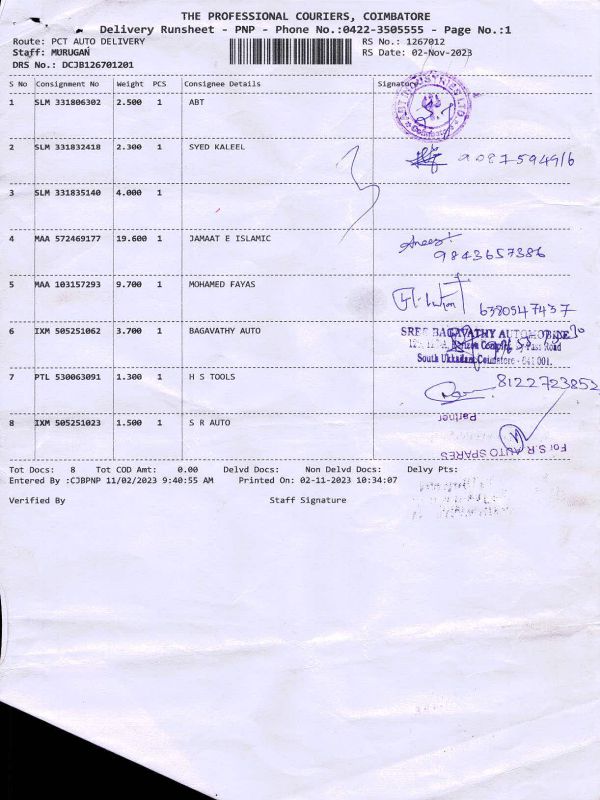 THE PROFESSIONAL COURIERS, COIMBATORE
Delivery Runsheet - PNP - Phone No.:0422-3505555 - Page No.:1
Route: PCT AUTO DELIVERY RS No.: 1267012
Staff: MURUGAN RS Date: 02-Nov-2023
DRS No.: DCJB126701201
S No Consignment No Weight PCS Consignee Details Signature
1 SLM 331806302 2.500 1 ABT
ABT INDUSTRIES LTD Coimbatore
2 SLM 331832418 2.300 1 SYED KALEEL
3 SLM 331835140 4.000 1
4 MAA 572469177 19.600 1 JAMAAT E ISLAMIC
9843657386
5 MAA 103157293 9.700 1 MOHAMED FAYAS
6380547437
6 IXM 505251062 3.700 1 BAGAVATHY AUTO SREE BAGAVATHY AUTOMOBINE
South Ukkadam, Coimbatore - 641 001.
7 PTL 530063091 1.300 1 H S TOOLS 8122723852
Partner
8 IXM 505251023 1.500 1 S R AUTO
For S.R AUTO SPARES
Tot Docs: 8 Tot COD Amt: 0.00 Delvd Docs: Non Delvd Docs: Delvy Pts:
Entered By :CJBPNP 11/02/2023 9:40:55 AM Printed On: 02-11-2023 10:34:07
Verified By Staff Signature